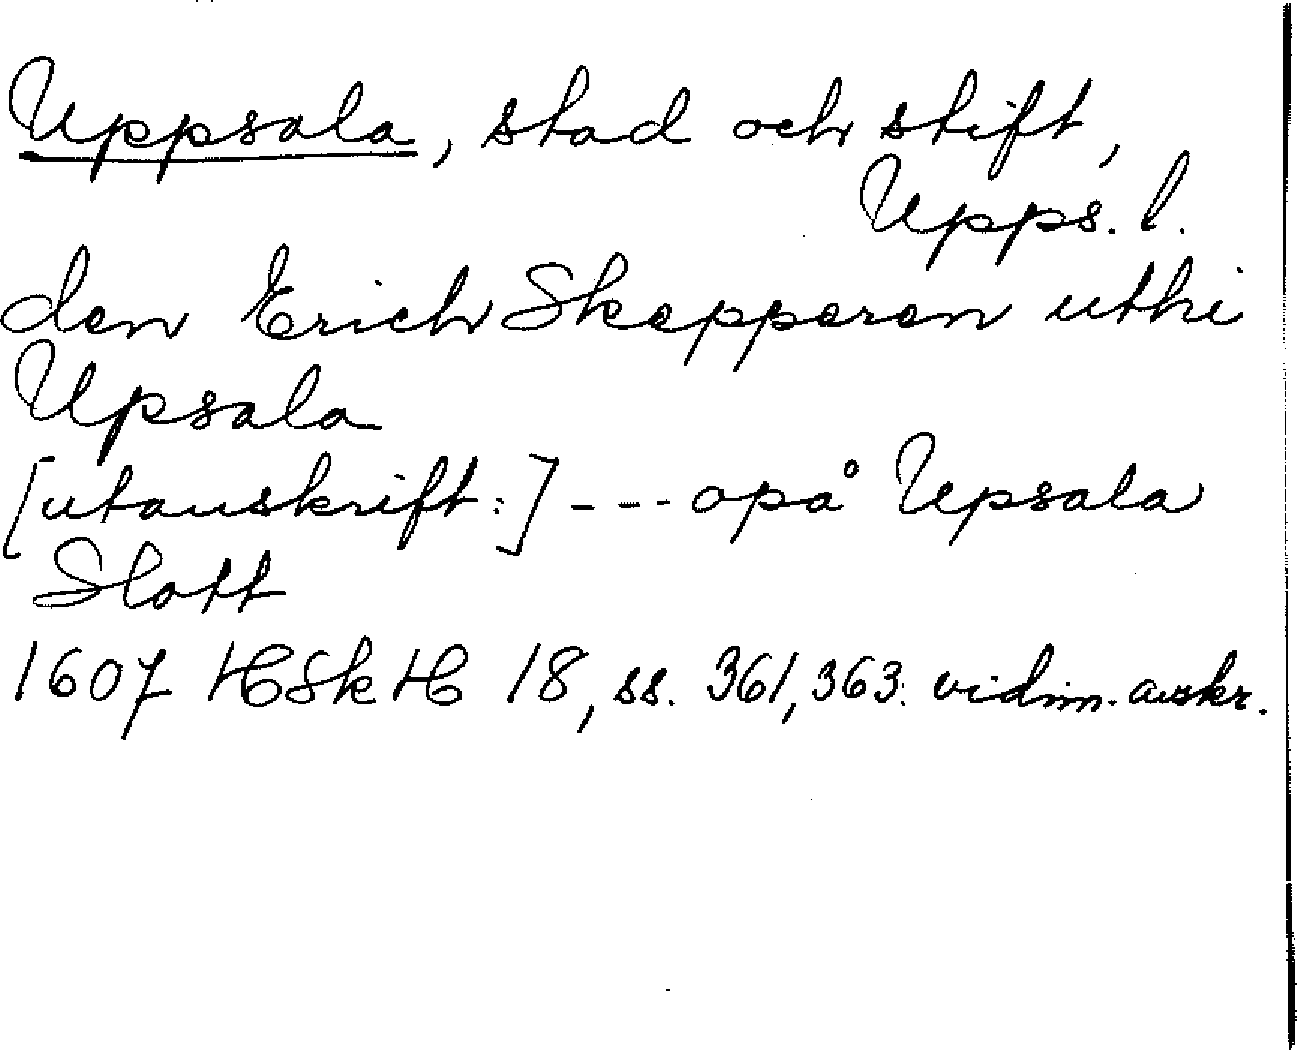 Uppsala, stad och stift,
Upps. l.
den Erich Skepperen uthi
Upsala
[utanskrift:] --- opå Upsala
Slott
1607 HSkH 18, ss. 361, 363. vidim. avskr.